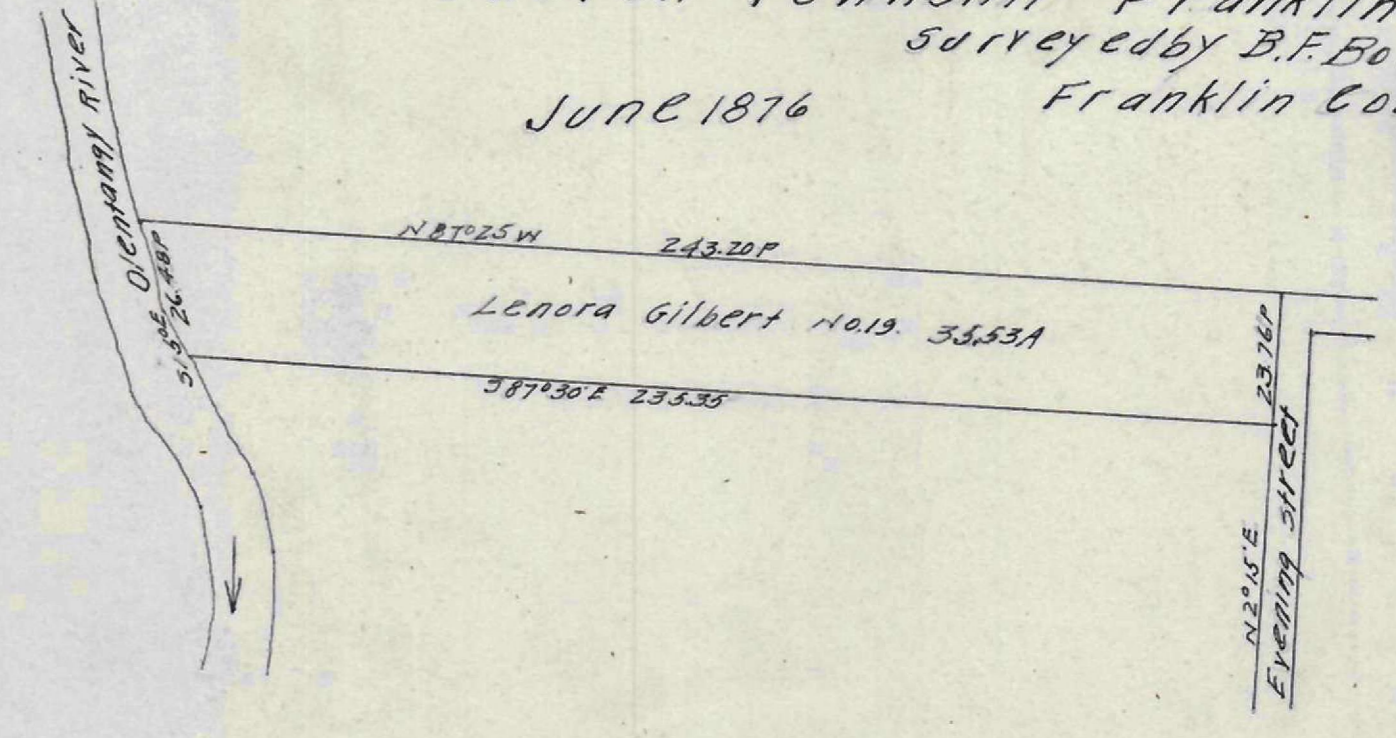 Township Franklin
Surveyed by B.F. Bo
June 1876
Franklin Co.
Olentangy River
N 87°25 W 243.20P
S15°0E 26.48P
Lenora Gilbert No.19. 35.53A
23.76P
S87°30'E 235.35
N2°15'E
Evening Street